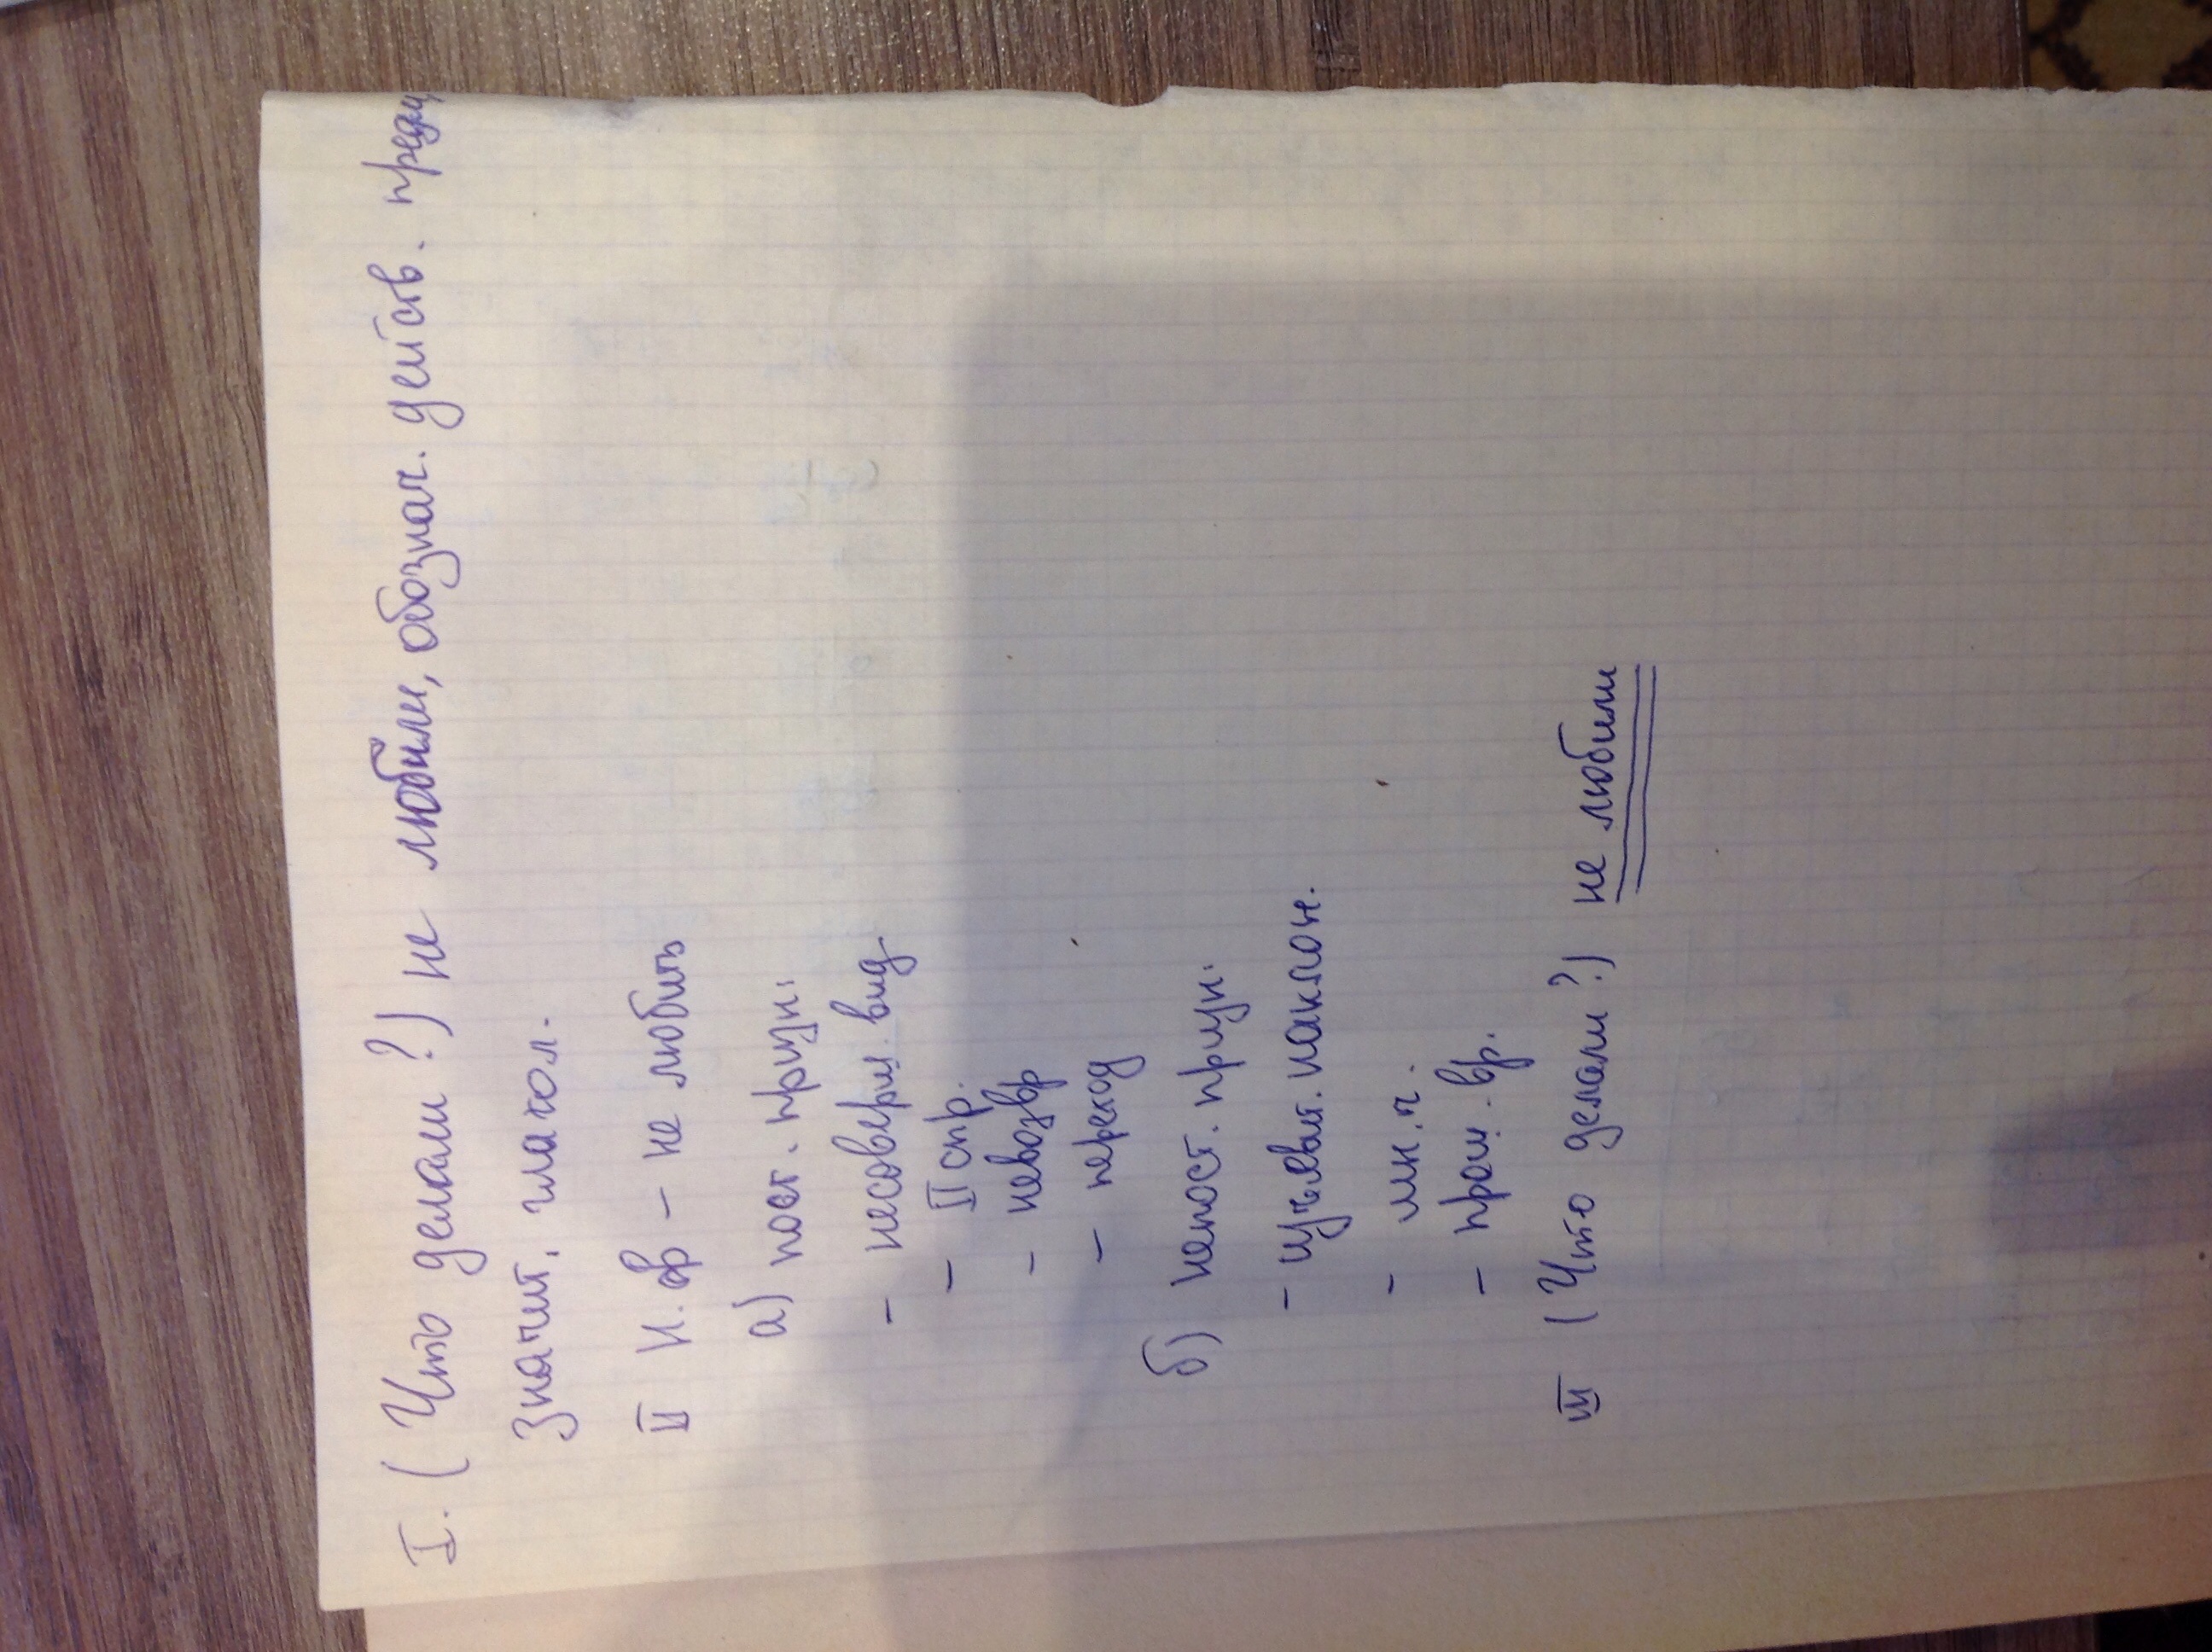 I. (Что делали?) не любили, обознач. действ. предм
Значит, глагол.
II Н. ф – не любить
а) пост. призн:
- несоверш. вид.
- II спр.
- невозвр
- переход
б) непост. призн:
- изъявит. наклон.
- мн. ч.
- прош. вр.
III (Что делали?) не любили